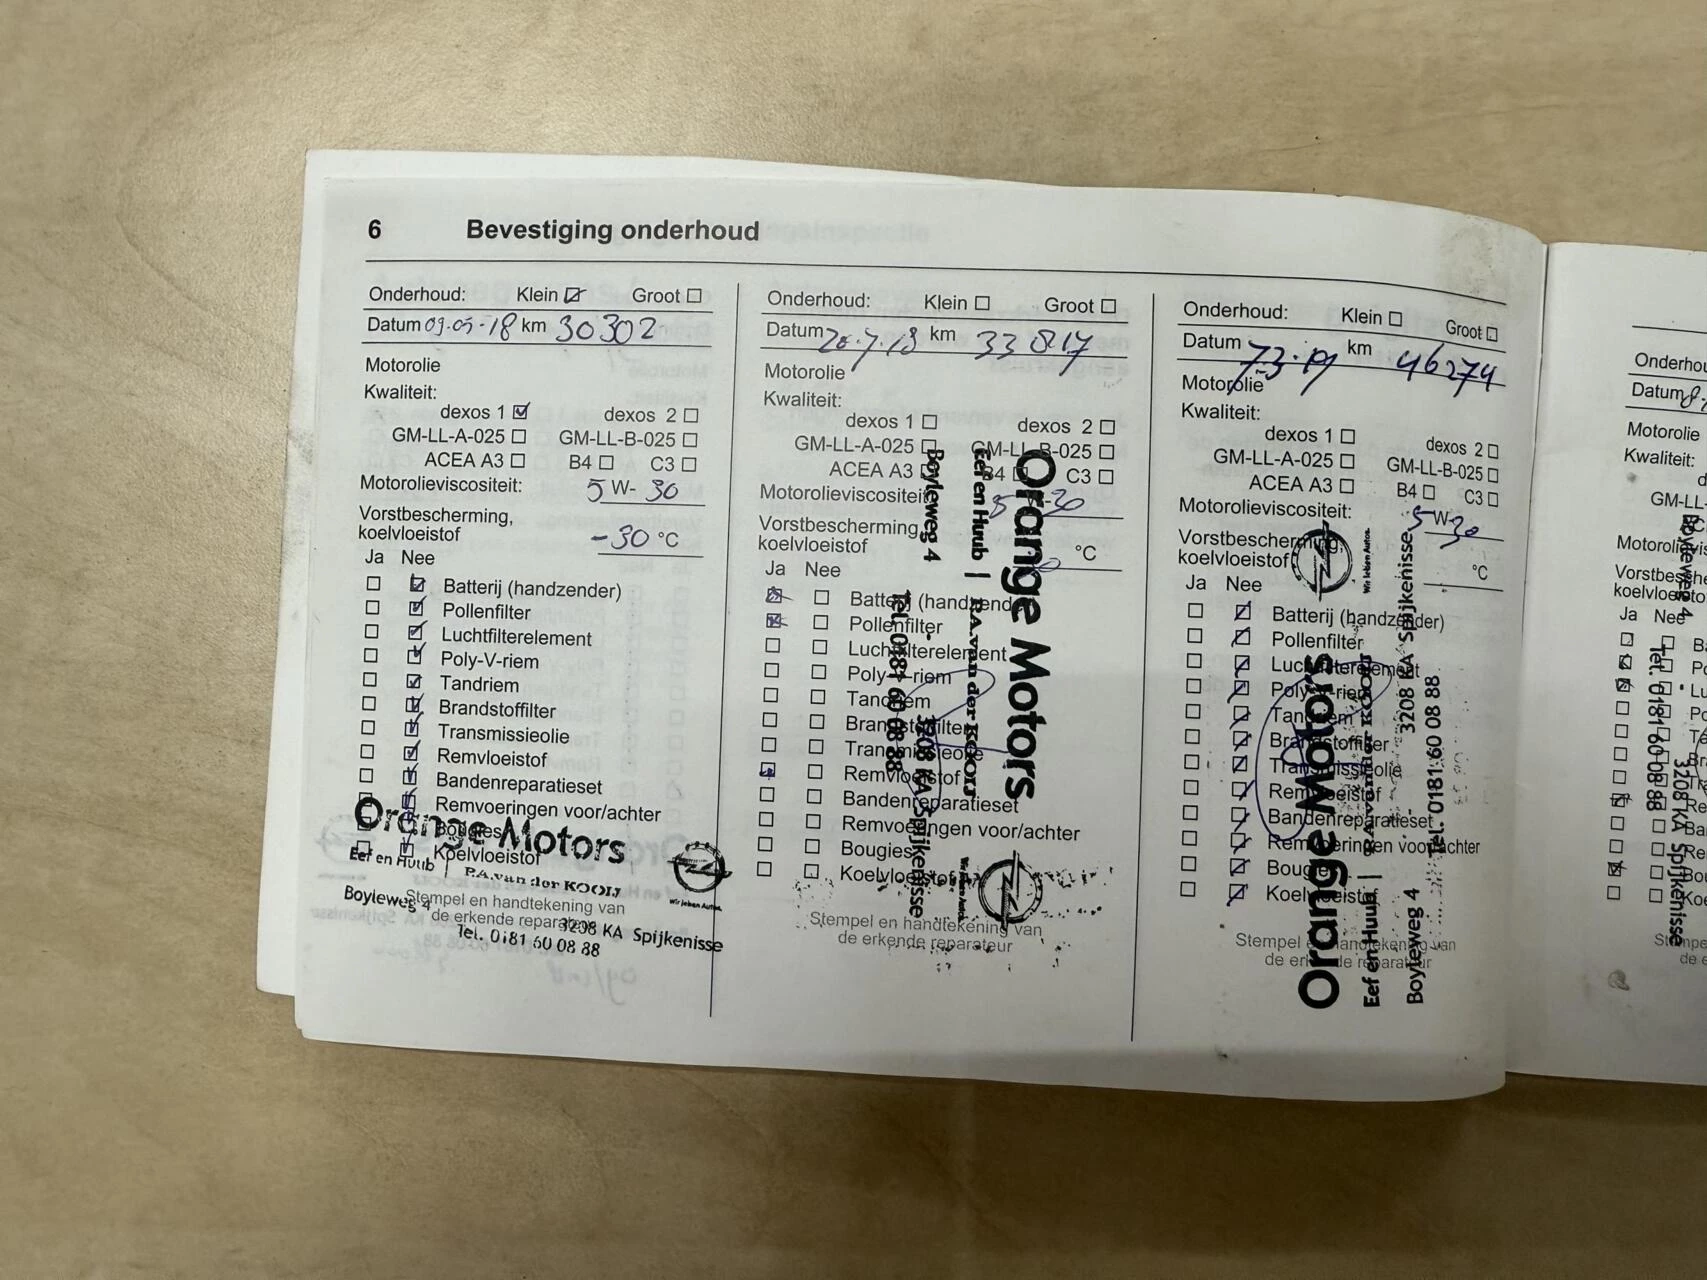 6 Bevestiging onderhoud
Onderhoud: Klein Groot
Datum 09-05-18 km 30302
Motorolie
Kwaliteit:
dexos 1 dexos 2
GM-LL-A-025 GM-LL-B-025
ACEA A3 B4 C3
Motorolieviscositeit: 5 W-30
Vorstbescherming,
koelvloeistof -30 °C
Ja Nee
Batterij (handzender)
Pollenfilter
Luchtfilterelement
Poly-V-riem
Tandriem
Brandstoffilter
Transmissieolie
Remvloeistof
Bandenreparatieset
Remvoeringen voor/achter
Bougies
Koelvloeistof
Orange Motors
Eef en Huub | P.A. van der KOOIJ
Wir leben Autos.
Boyleweg 4
3208 KA Spijkenisse
Tel. 0181 60 08 88
Stempel en handtekening van
de erkende reparateur
Onderhoud: Klein Groot
Datum km 33817
Motorolie
Kwaliteit:
dexos 1 dexos 2
GM-LL-A-025 GM-LL-B-025
ACEA A3 B4 C3
Motorolieviscositeit: 5 W-30
Vorstbescherming,
koelvloeistof °C
Ja Nee
Batterij (handzender)
Pollenfilter
Luchtfilterelement
Poly-V-riem
Tandriem
Brandstoffilter
Transmissieolie
Remvloeistof
Bandenreparatieset
Remvoeringen voor/achter
Bougies
Koelvloeistof
Stempel en handtekening van
de erkende reparateur
Orange Motors
Eef en Huub | P.A. van der KOOIJ
Boyleweg 4 - 3208 KA Spijkenisse
Tel. 0181 60 08 88
Wir leben Autos.
Onderhoud: Klein Groot
Datum 7-3-19 km 46274
Motorolie
Kwaliteit:
dexos 1 dexos 2
GM-LL-A-025 GM-LL-B-025
ACEA A3 B4 C3
Motorolieviscositeit: 5 W-30
Vorstbescherming,
koelvloeistof °C
Ja Nee
Batterij (handzender)
Pollenfilter
Luchtfilterelement
Poly-V-riem
Tandriem
Brandstoffilter
Transmissieolie
Remvloeistof
Bandenreparatieset
Remvoeringen voor/achter
Bougies
Koelvloeistof
Stempel en handtekening van
de erkende reparateur
Orange Motors
Eef en Huub | P.A. van der KOOIJ
Boyleweg 4 - 3208 KA Spijkenisse
Tel. 0181 60 08 88
Wir leben Autos.
Datum
Motorolie
Kwaliteit:
Ja Nee
Boyleweg 4 - 3208 KA Spijkenisse
Tel. 0181 60 08 88